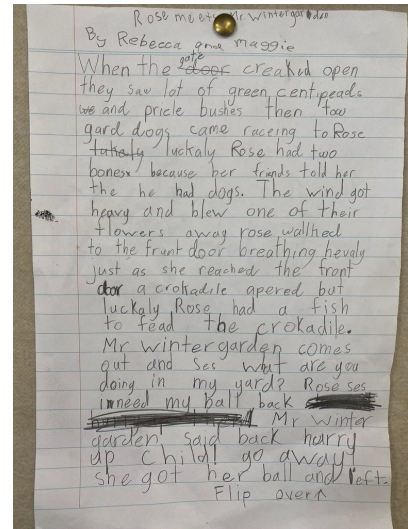 Rose meets Mr. Wintergarden
By Rebecca and Maggie
When the gate creaked open
they saw lot of green centipeads
and pricle bushes then tow
gard dogs came raceing to Rose
luckaly Rose had two
bones because her friends told her
the he had dogs. The wind got
heavy and blew one of their
flowers away rose walked
to the frunt door breathing hevaly
just as she reached the front
door a crokadile apered but
luckaly Rose had a fish
to fead the crokadile.
Mr wintergarden comes
out and ses wat are you
doing in my yard? Rose ses
I need my ball back
Mr Winter
garden said back harry
up child! go away
she got her ball and left.
Flip over